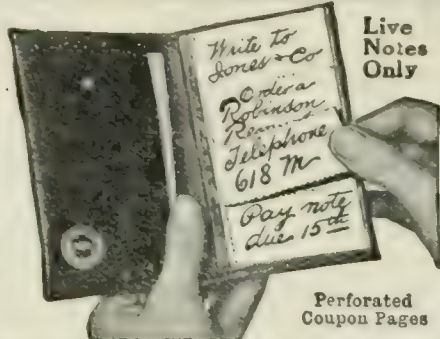 Live
Notes
Only
Write to
Jones & Co
Order a
Robinson
Telephone
618 M
Pay note
due 15th
Perforated
Coupon Pages